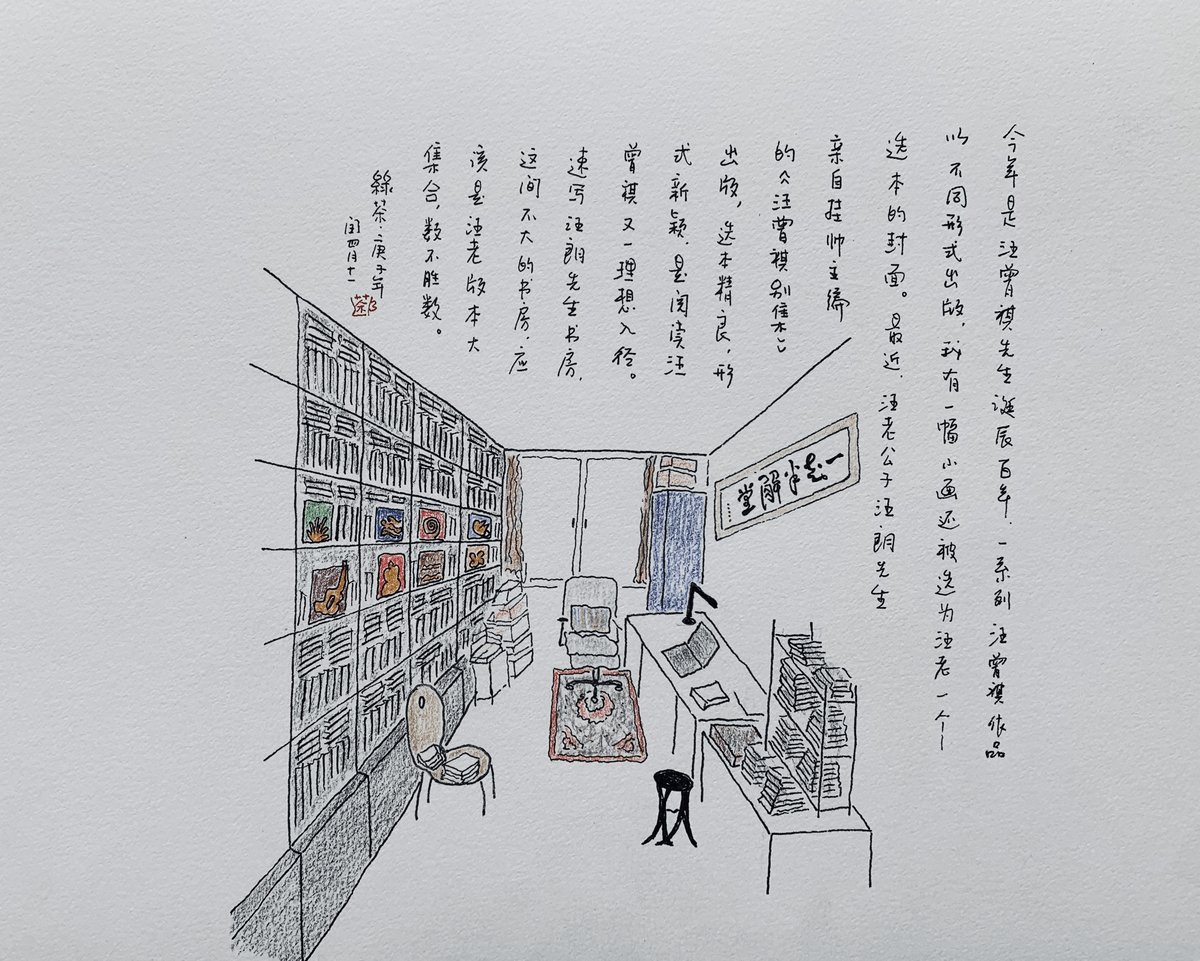 今年是汪曾祺先生诞辰百年.一系列汪曾祺作品
以不同形式出版,我有一幅小画还被选为汪老一个
选本的封面。最近.汪老公子汪朗先生
亲自挂帅主编
的《汪曾祺别集》
出版,选本精良,形
式新颖.是阅读汪
曾祺又一理想入径。
速写汪朗先生书房.
这间不大的书房.应
该是汪老版本大
集合,数不胜数。
綠茶·庚子年
闰四月十一
茶
一志半解堂